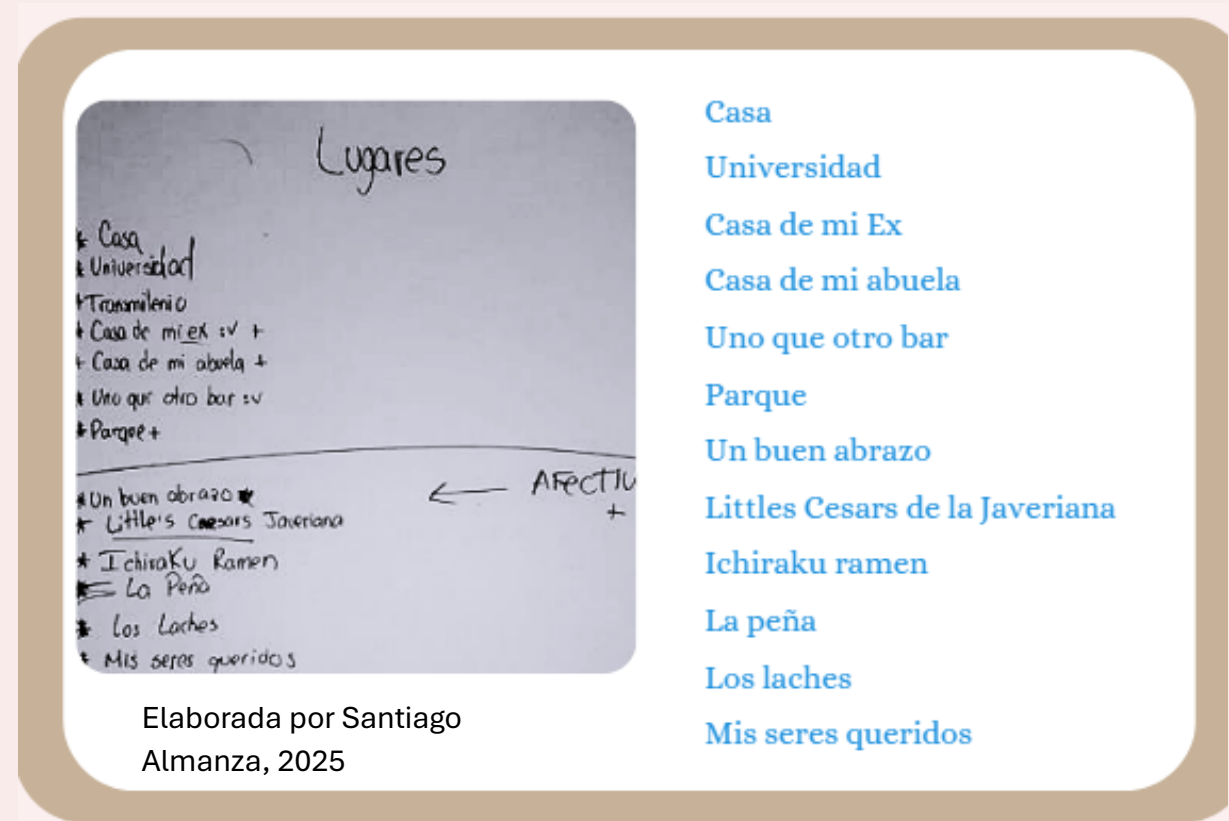 Lugares
* Casa
* Universidad
* Transmilenio
* Casa de mi ex :v +
* Casa de mi abuela +
* Uno que otro bar :v
* Parque +
* Un buen abrazo *
← AFECTIV
+
* Little's Caesars Javeriana
* Ichiraku Ramen
La Peña
* Los Laches
* Mis seres queridos
Elaborada por Santiago
Almanza, 2025
Casa
Universidad
Casa de mi Ex
Casa de mi abuela
Uno que otro bar
Parque
Un buen abrazo
Littles Cesars de la Javeriana
Ichiraku ramen
La peña
Los laches
Mis seres queridos